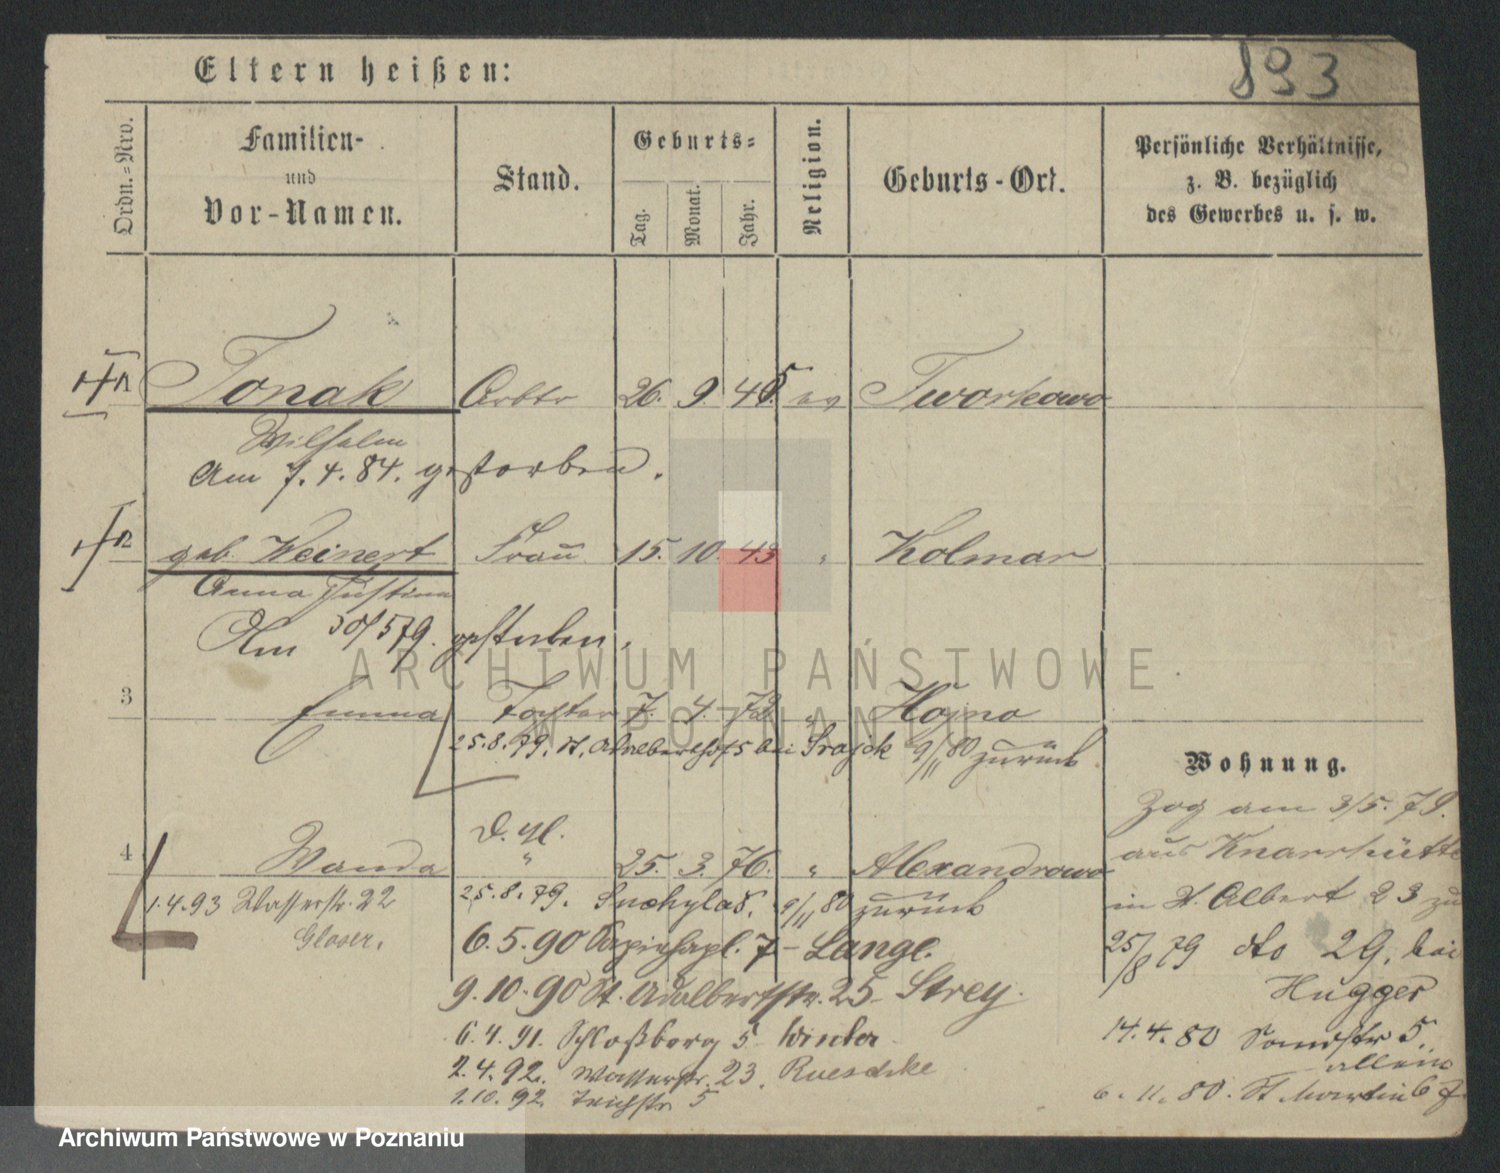 893
Eltern heißen:
Ordn.=Nro.
Familien-
und
Vor-Namen.
Stand.
Geburts=
Tag.
Monat.
Jahr.
Religion.
Geburts-Ort.
Persönliche Verhältnisse,
z. B. bezüglich
des Gewerbes u. s. w.
1 Tonak Arbtr 26. 9. 45. ev Tworkowo
Wilhelm
Am 7.4.84. gestorben.
2 geb. Weinert Frau 15. 10. 43 " Kolmar
Anna Justina
Am 30/5 79. gestorben.
ARCHIWUM PAŃSTWOWE
W POZNANIU
3 Emma Tochter 7. 4. 72 "
25.8.79. St. Adalbertstr 5 bei 9/11 80 zurück
Wohnung.
Zog am 3/5. 79.
aus Knarrhütte
in St. Albert 23 zu
25/8 79 dto 29, bei
Hugger
14.4.80 Sandstr 5.
allein
6.11.80. St Martin 67
d. gl.
4 Wanda " 25. 3. 76. " Alexandrowo
25.8.79. 9/11 80 zurück
1.4.93 Wasserstr. 22
Glaser.
6.5.90 Sapiehapl. 7- Lange.
9.10.90 St. Adalbertstr. 25- Strey.
6.4.91. Schloßberg 5 Winter
2.4.92. Wasserstr. 23. Rueschke
1.10.92. Teichstr. 5
Archiwum Państwowe w Poznaniu